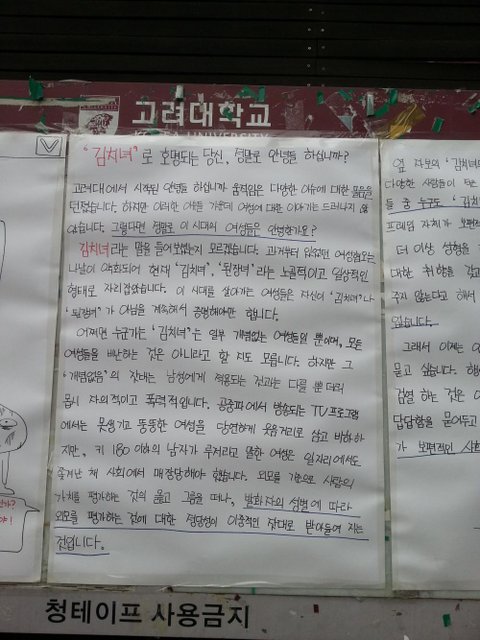 고려대학교
KOREA UNIVERSITY
"김치녀"로 호명되는 당신, 정말로 안녕들 하십니까?
고려대에서 시작된 안녕들 하십니까 움직임은 다양한 이슈에 대한 물음을
던졌습니다. 하지만 이러한 이슈들 가운데 여성에 대한 이야기는 드러나지 않
았습니다. 그렇다면 정말로 이 시대의 여성들은 안녕한가요?
김치녀라는 말을 들어보셨는지 모르겠습니다. 과거부터 있었던 여성혐오는
나날이 악화되어 현재 '김치녀', '된장녀'라는 노골적이고 일상적인
형태로 자리잡았습니다. 이 시대를 살아가는 여성들은 자신이 '김치녀'나
'된장녀'가 아님을 계속해서 증명해야만 합니다.
어쩌면 누군가는 '김치녀'는 일부 개념없는 여성들일 뿐이며, 모든
여성들을 비난하는 것은 아니라고 할 지도 모릅니다. 하지만 그
"개념없음"의 잣대는 남성에게 적용되는 것과는 다를 뿐 더러
몹시 자의적이고 폭력적입니다. 공중파에서 방송되는 TV프로그램
에서는 못생기고 뚱뚱한 여성을 당연하게 웃음거리로 삼고 비하하
지만, 키 180 이하의 남자가 루저라고 말한 여성은 일자리에서도
쫓겨난 채 사회에서 매장당해야 했습니다. 외모를 기준으로 사람의
가치를 평가하는 것의 옳고 그름을 떠나, 발화자의 성별에 따라
외모를 평가하는 것에 대한 정당성이 이중적인 잣대로 받아들여 지는
것입니다.
옆 자보의 '김치녀
다양한 사람들이
들 중 누구도 '김치
프레임 자체가 보편
더 이상 성형을
대한 취향을 갖고
주지 않는다고 해서
있습니다.
그래서 이제는
묻고 싶습니다.
검열 하는 것은
답답함을 묻어두고
가 보편적인 사회
청테이프 사용금지